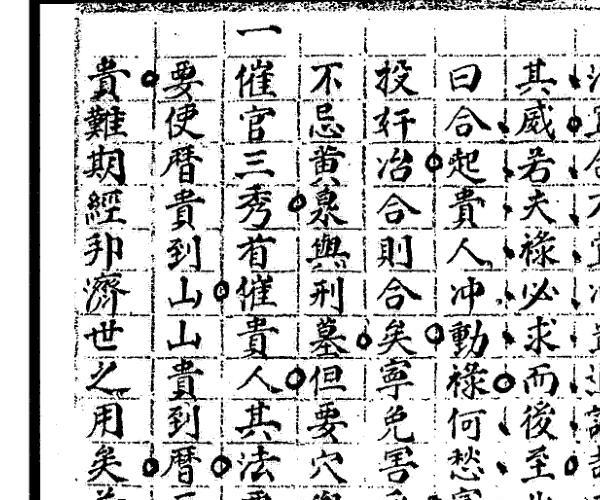 其威若夫祿必求而後至
曰合起貴人冲動祿何愁
投奸冶合則合矣寧免害
不忌黄泉與刑墓但要穴
一催官三秀有催貴人其法
要使暦貴到山山貴到暦
貴難期經邦濟世之用矣